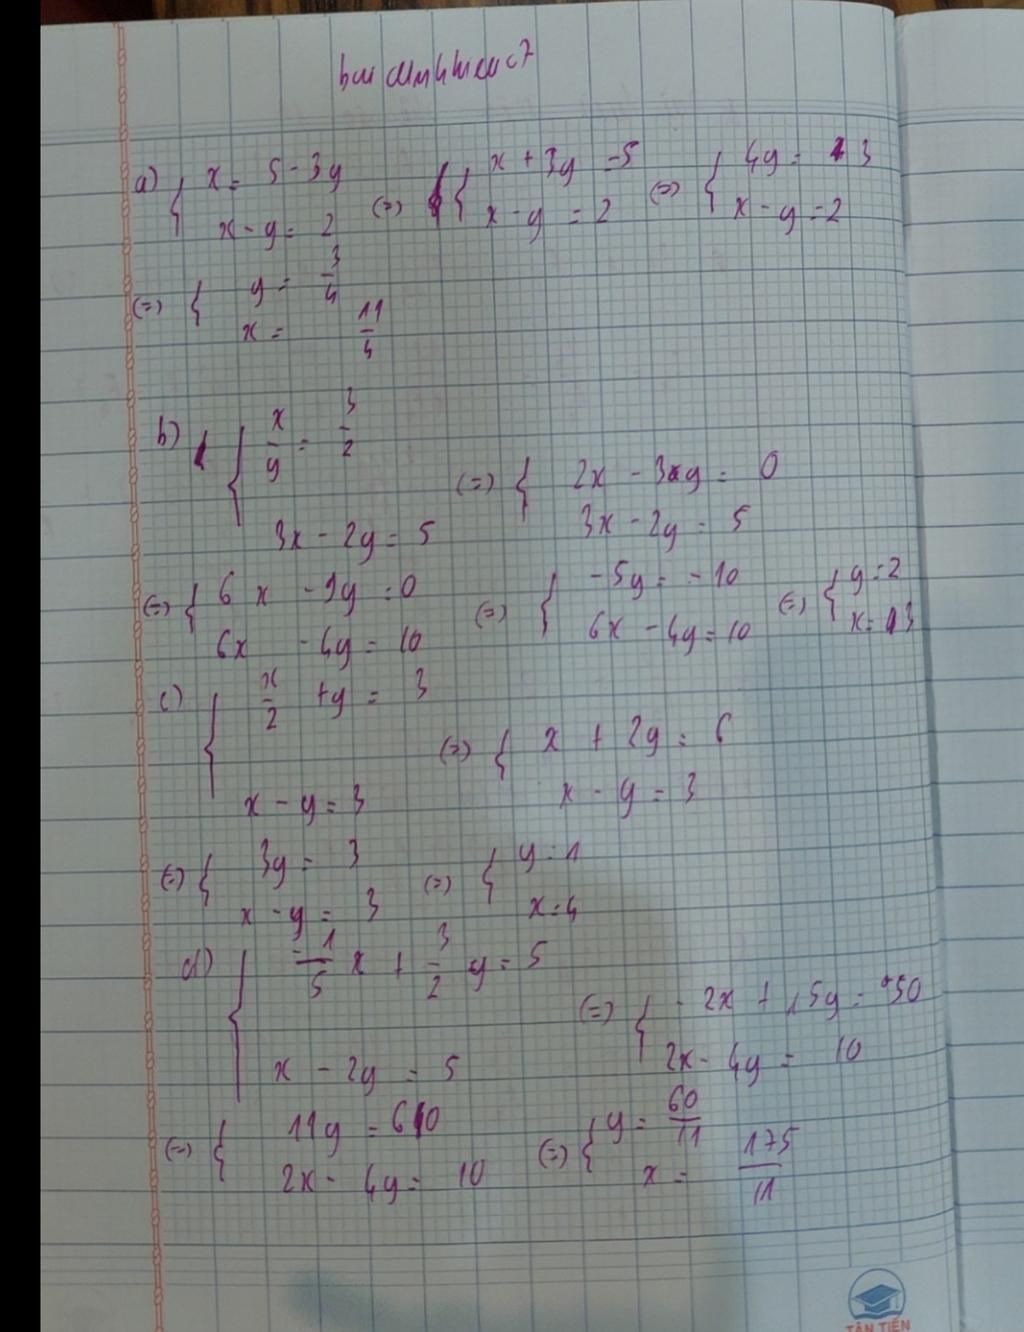 a) { x = 5 - 3y
x - y = 2 (=) { x + 3y = 5
x - y = 2 (=) { 4y = 3
x - y = 2
(=) { y = 3/4
x = 11/4
b) { x/y = 3/2
3x - 2y = 5 (=) { 2x - 3y = 0
3x - 2y = 5
(=) { 6x - 9y = 0
6x - 4y = 10 (=) { -5y = -10
6x - 4y = 10 (=) { y = 2
x = 3
c) { x/2 + y = 3
x - y = 3 (=) { x + 2y = 6
x - y = 3
(=) { 3y = 3
x - y = 3 (=) { y = 1
x = 4
d) { -1/5 x + 3/2 y = 5
x - 2y = 5 (=) { -2x + 15y = 50
2x - 4y = 10
(=) { 11y = 60
2x - 4y = 10 (=) { y = 60/11
x = 175/11
TÂN TIẾN